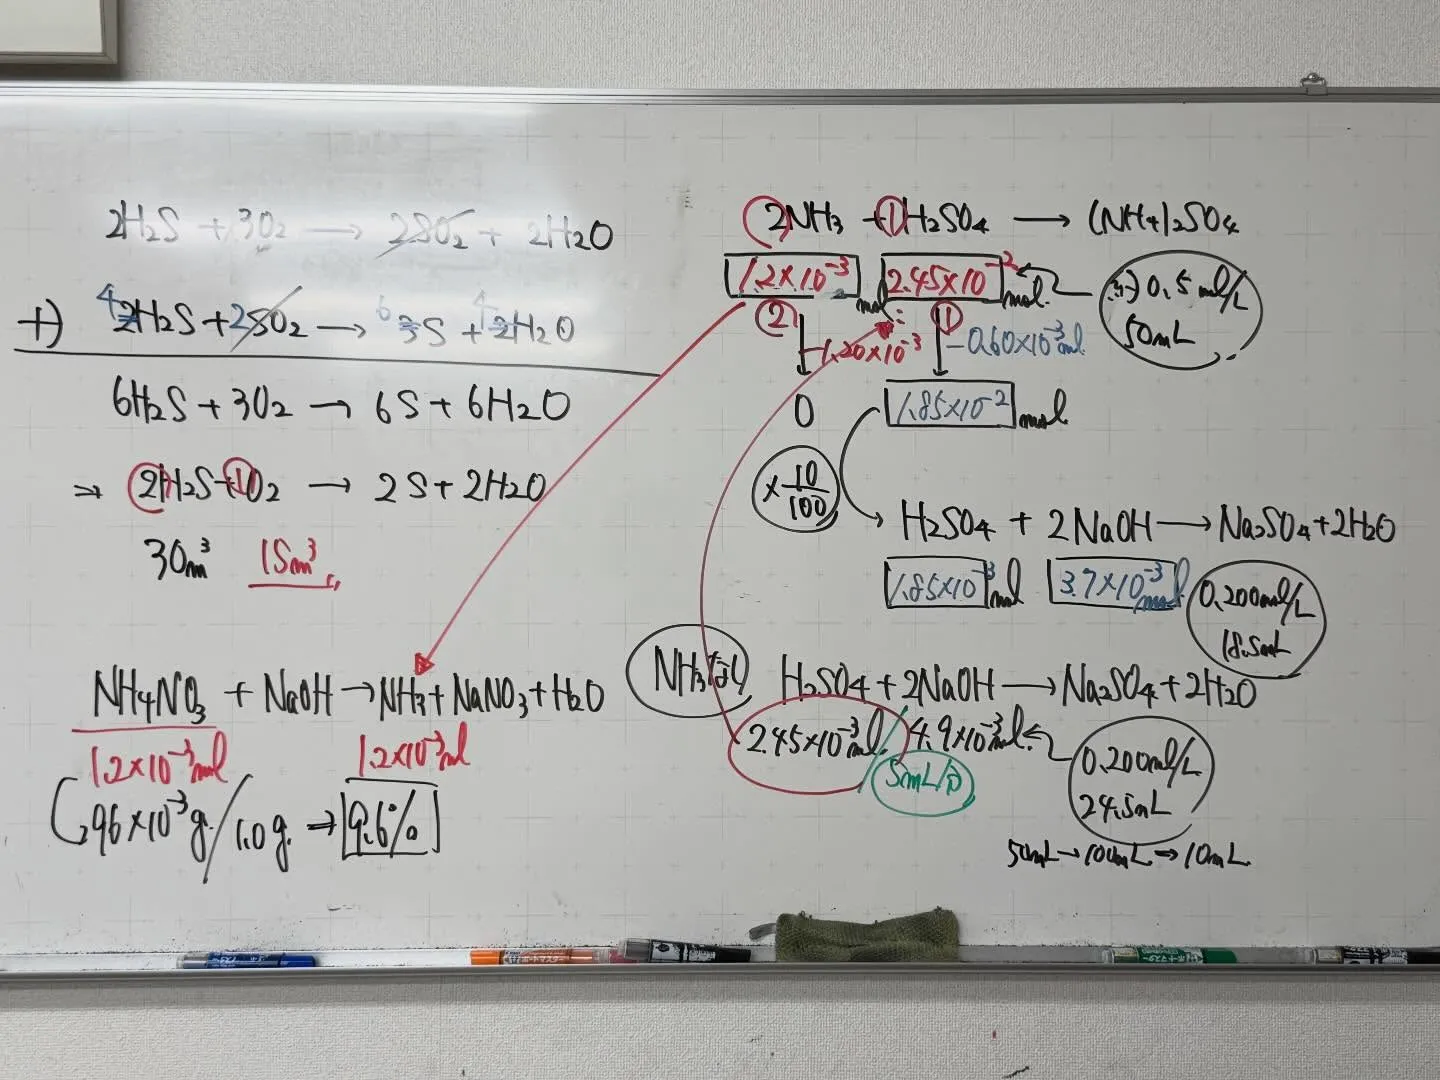 2H₂S + 3O₂ → 2SO₂ + 2H₂O
+) 42H₂S + 2SO₂ → 63S + 42H₂O
6H₂S + 3O₂ → 6S + 6H₂O
⇒ 2H₂S + 1O₂ → 2S + 2H₂O
30m³ 15m³
NH₄NO₃ + NaOH → NH₃ + NaNO₃ + H₂O
1.2×10⁻³mol 1.2×10⁻³mol
96×10⁻³g / 1.0g ⇒ 9.6%
2NH₃ + 1H₂SO₄ → (NH₄)₂SO₄
1.2×10⁻³ mol 2.45×10⁻² mol
0.5mol/L
50mL
② : ①
-1.20×10⁻³ -0.60×10⁻³mol
0 1.85×10⁻² mol
×10/100
H₂SO₄ + 2NaOH → Na₂SO₄ + 2H₂O
1.85×10⁻³ mol 3.7×10⁻³ mol
0.200mol/L
18.5mL
NH₃なし H₂SO₄ + 2NaOH → Na₂SO₄ + 2H₂O
2.45×10⁻³mol 4.9×10⁻³mol
0.200mol/L
24.5mL
50mL → 100mL → 10mL